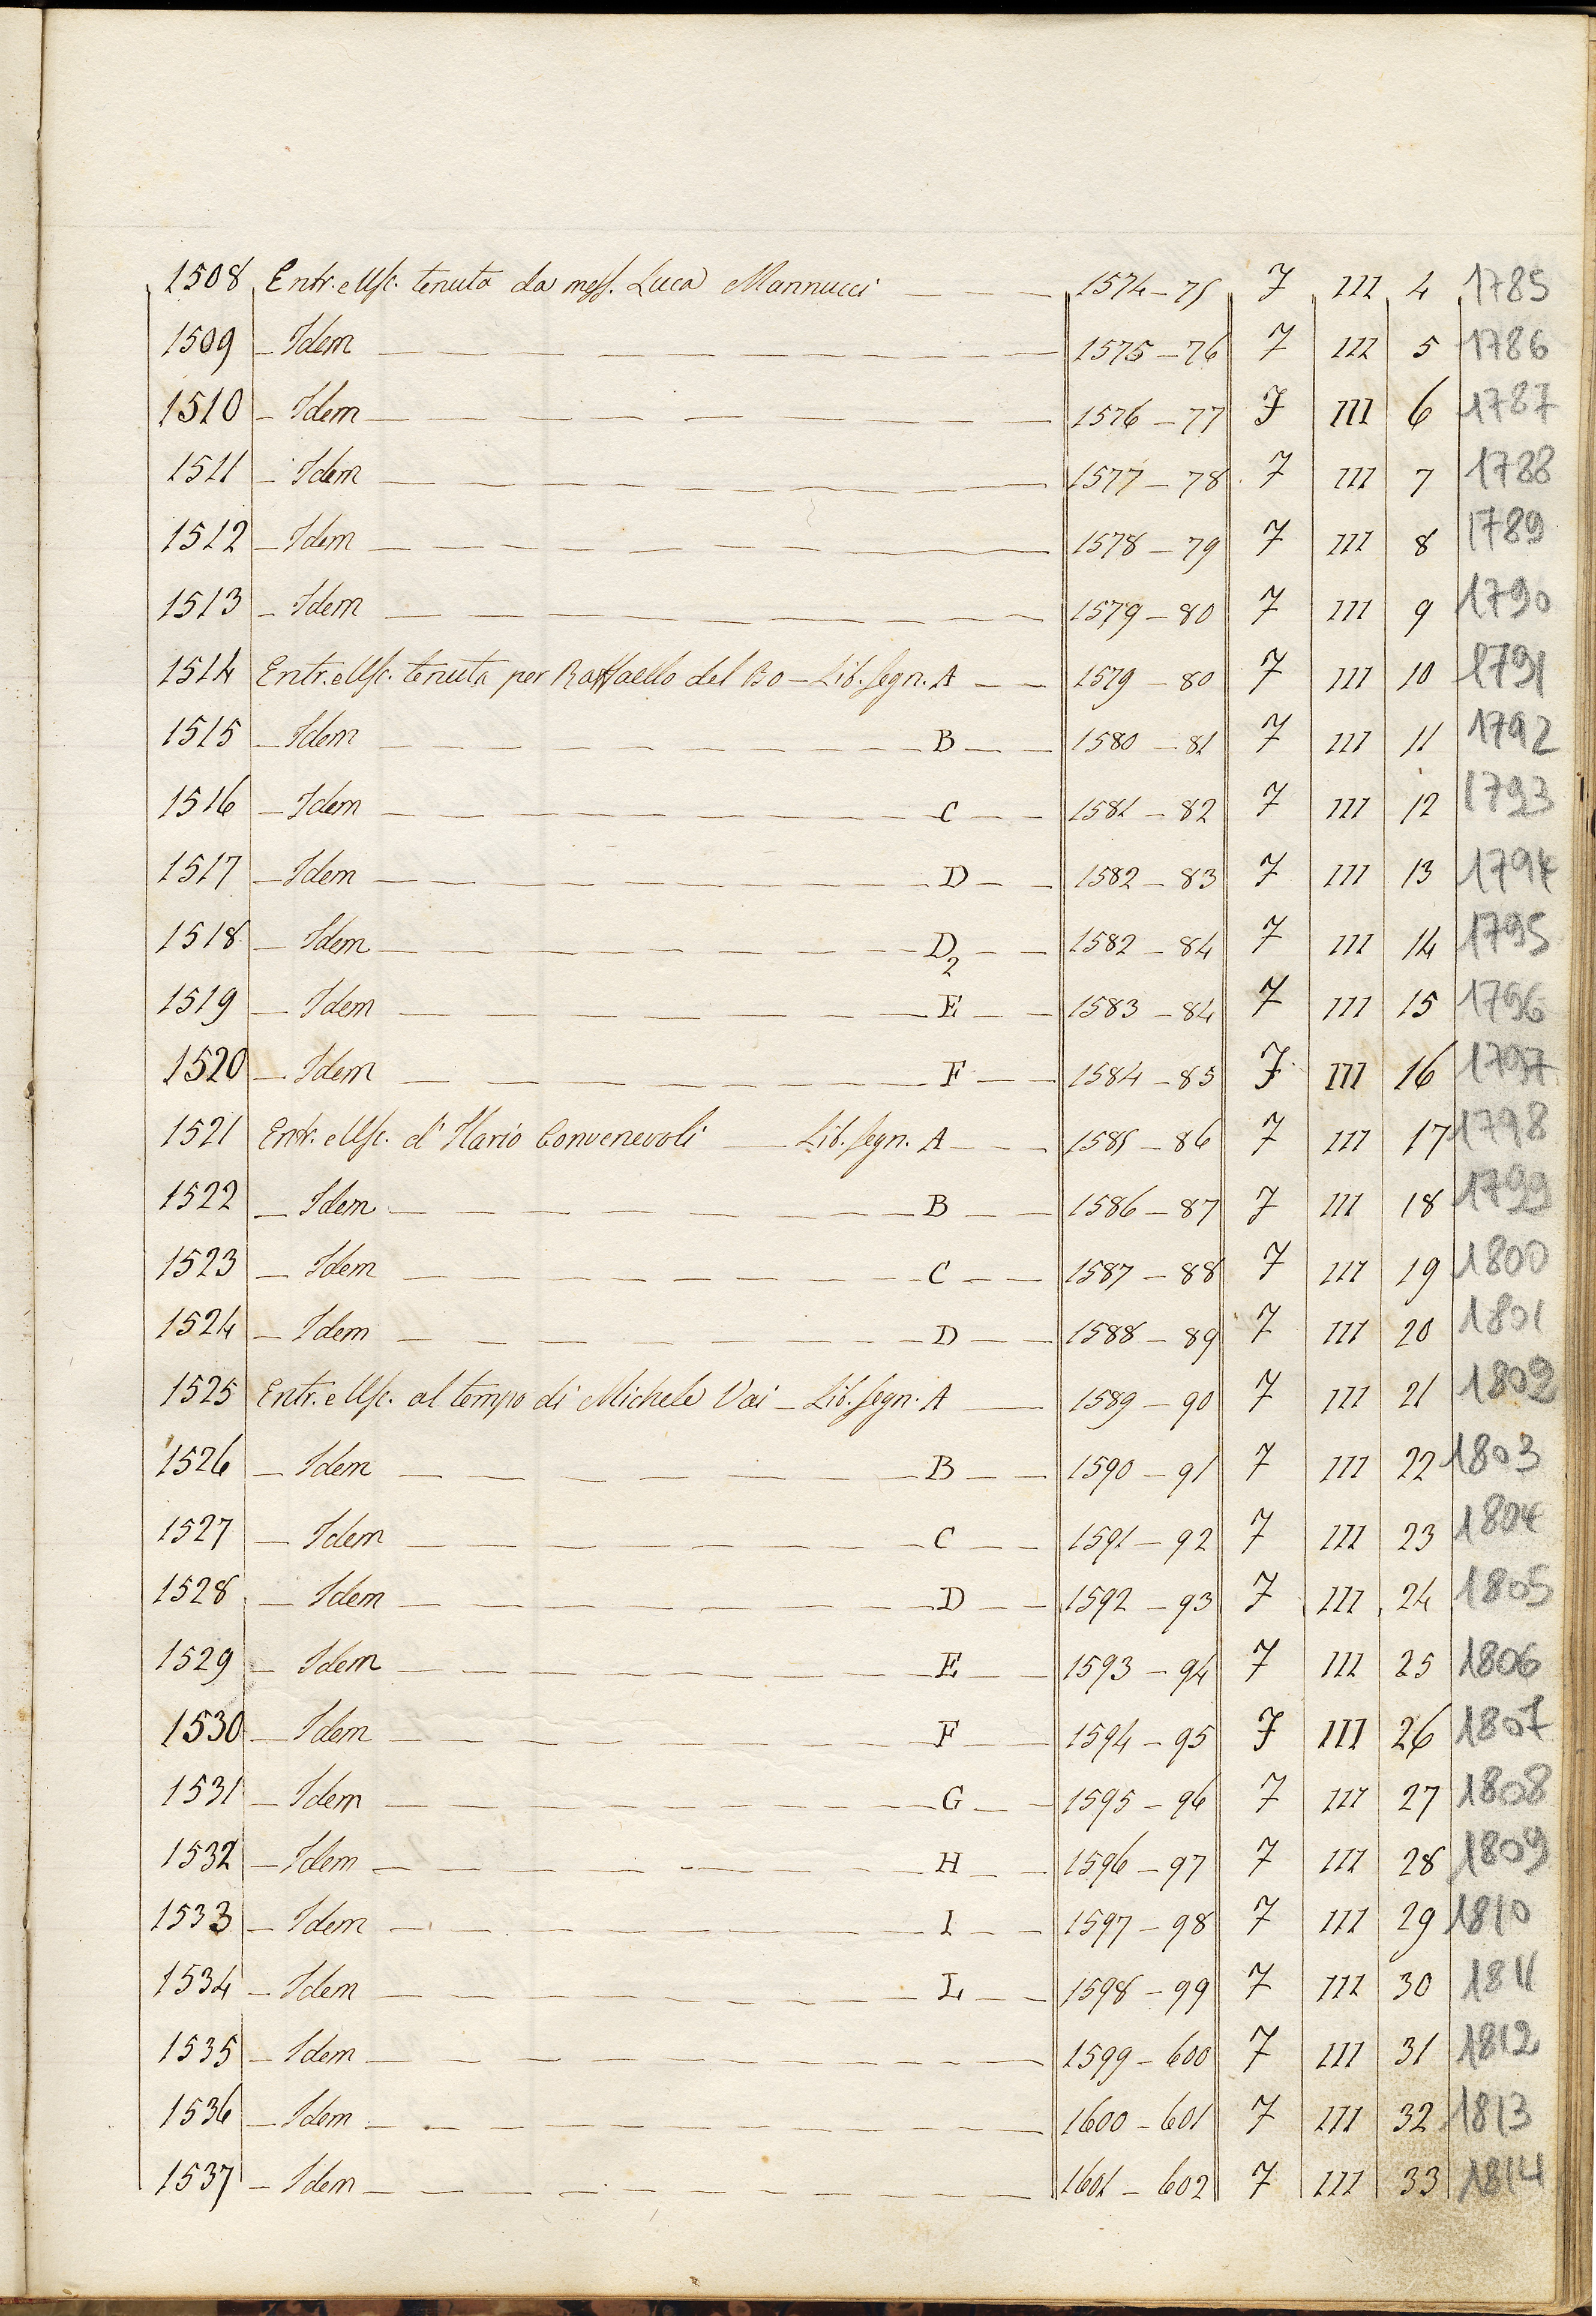 1508 Entr. e Usc. tenuta da mess. Luca Mannucci 1574-75 7 III 4 1785
1509 - Idem 1575-76 7 III 5 1786
1510 - Idem 1576-77 7 III 6 1787
1511 - Idem 1577-78 7 III 7 1788
1512 - Idem 1578-79 7 III 8 1789
1513 - Idem 1579-80 7 III 9 1790
1514 Entr. e Usc. tenuta per Raffaello del Bo - Lib. segn. A 1579-80 7 III 10 1791
1515 - Idem B 1580-81 7 III 11 1792
1516 - Idem C 1581-82 7 III 12 1793
1517 - Idem D 1582-83 7 III 13 1794
1518 - Idem D2 1582-84 7 III 14 1795
1519 - Idem E 1583-84 7 III 15 1796
1520 - Idem F 1584-85 7 III 16 1797
1521 Entr. e Usc. d'Ilario Convenevoli - Lib. segn. A 1585-86 7 III 17 1798
1522 - Idem B 1586-87 7 III 18 1799
1523 - Idem C 1587-88 7 III 19 1800
1524 - Idem D 1588-89 7 III 20 1801
1525 Entr. e Usc. al tempo di Michele Vai - Lib. segn. A 1589-90 7 III 21 1802
1526 - Idem B 1590-91 7 III 22 1803
1527 - Idem C 1591-92 7 III 23 1804
1528 - Idem D 1592-93 7 III 24 1805
1529 - Idem E 1593-94 7 III 25 1806
1530 - Idem F 1594-95 7 III 26 1807
1531 - Idem G 1595-96 7 III 27 1808
1532 - Idem H 1596-97 7 III 28 1809
1533 - Idem I 1597-98 7 III 29 1810
1534 - Idem L 1598-99 7 III 30 1811
1535 - Idem 1599-600 7 III 31 1812
1536 - Idem 1600-601 7 III 32 1813
1537 - Idem 1601-602 7 III 33 1814